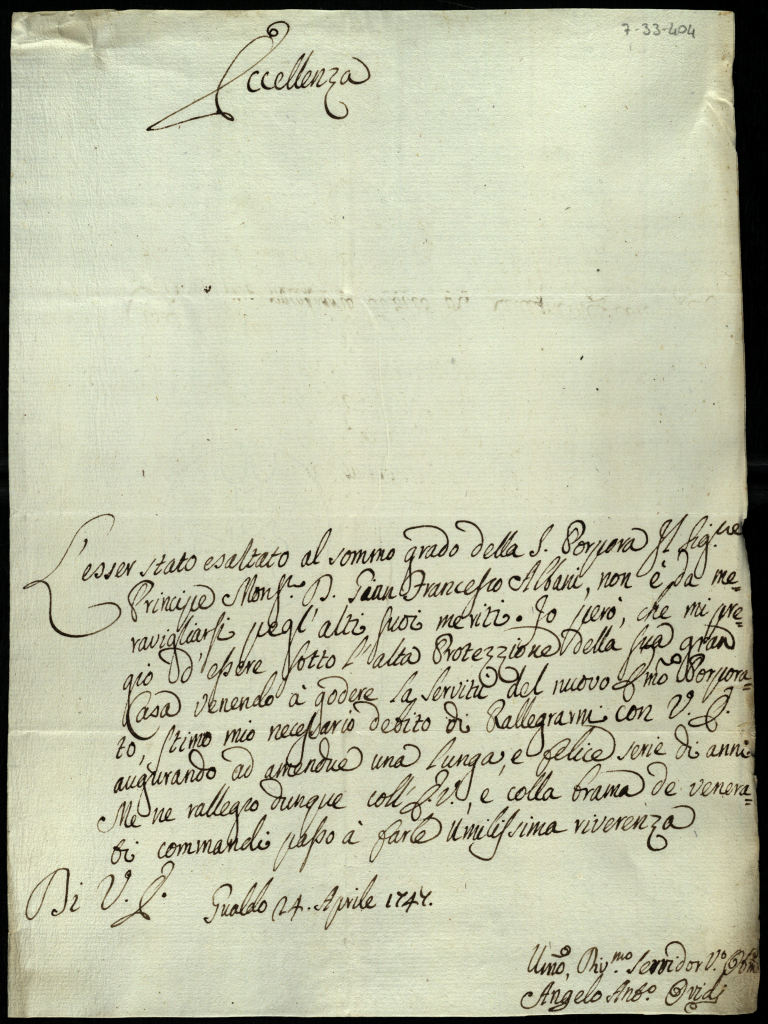 7-33-404
Eccellenza
L'esser stato esaltato al sommo grado della S. Porpora Il Sig.re
Principe Mons.r D. Gian Francesco Albani, non è da me-
ravigliarsi pegl'alti suoi meriti. Io però, che mi pre-
gio d'essere sotto l'alta Protezzione della sua gran
Casa venendo à godere la servitù del nuovo Emo Porpora-
to, stimo mio necessario debito di Rallegrarmi con V. E.
augurando ad amendue una lunga, e felice serie di anni
Me ne rallegro dunque coll'E.V., e colla brama de venera-
ti commandi passo à farle umilissima riverenza
Di V. E.
Gualdo 24. Aprile 1747.
Umo, Servidor V.o
Angelo Ant.o Ovidi